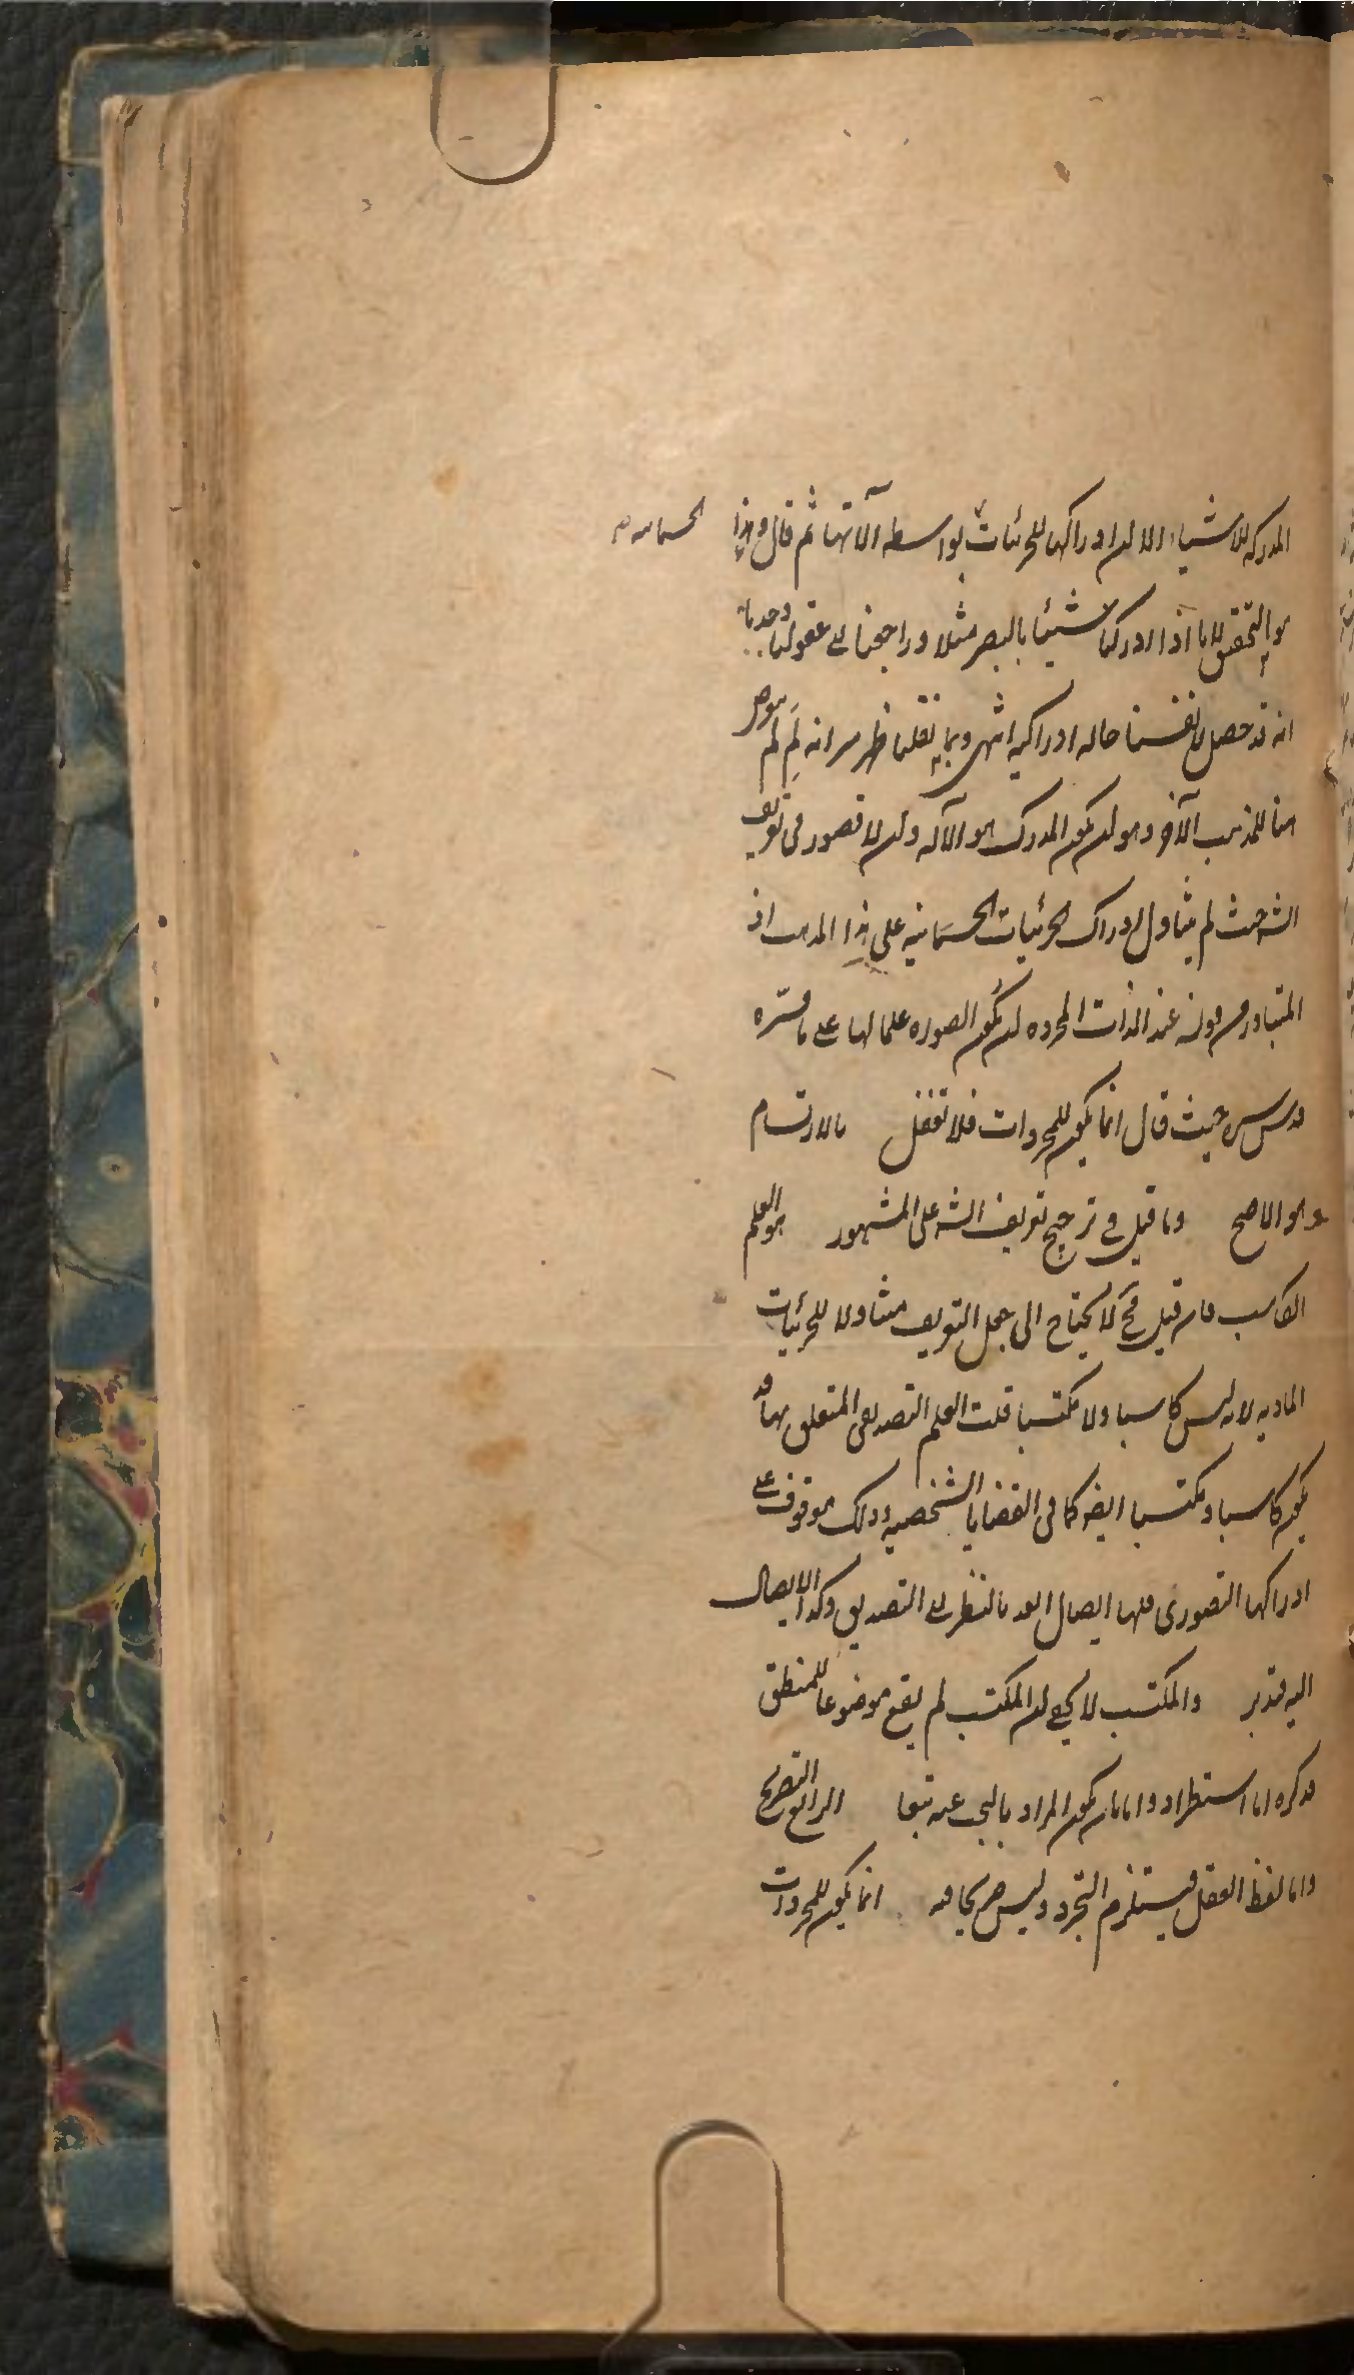 المدركه للاشياء الا ان ادراكها للجزئيات بواسطه آلاتها ثم قال وهذا الجسمانيه
هو التحقيق لانا اذا ادركنا شيئا بالبصر مثلا وراجعنا الى عقولنا وجدنا
انه قد حصل لانفسنا حاله ادراكيه انتهى وبما نقلنا ظهر سر انه لم لم يتعرض
هنا للمذهب الآخر وهو ان يكون المدرك هو الآله وان لا قصور فى تعريف
الشه حيث لم يتناول ادراك الجزئيات الجسمانيه على هذا المذهب اذ
المتبادر من قوله عند الذات المجرده ان يكون الصوره علما لها على ما فسره
قدس سره حيث قال انما يكون للمجردات فلا تغفل بالارتسام
وهو الاصح وما قيل فى ترجيح تعريف الشه على المشهور هو العلم
الكاسب فان قيل فح لا يحتاج الى جعل التعريف متناولا للجزئيات
الماديه لانه ليس كاسبا ولا مكتسبا قلت العلم التصديقى المتعلق بها قد
يكون كاسبا ومكتسبا ايضه كما فى القضايا الشخصيه وذلك موقوف على
ادراكها التصورى فلها ايصال ابعد بالنظر الى التصديق وكذا الايصال
اليه فتدبر والمكتسب لا يخفى ان المكتسب لم يقع موضوعا للمنطق
فذكره اما استطراد واما بان يكون المراد ما يبحث عنه تبعا الرابع التصريح
واما لفظ العقل فيستلزم التجرد وليس صريحا فيه انما يكون للمجردات